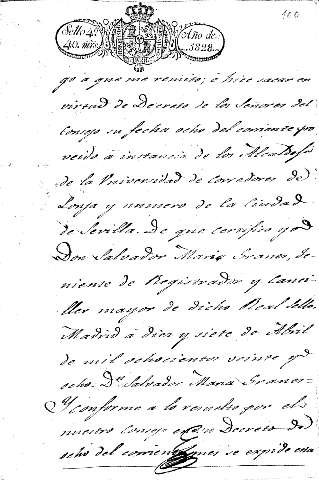 100
Sello 4º
40. mrs.
Año de
1828.
go a que me remito; é hice sacar en
virtud de Decreto de los Señores del
Consejo su fecha ocho del corriente pro
veido á instancia de los
de la Universidad de Corredores de
Lonja y numero de la Ciudad
de Sevilla. De que certifico yo
Don Salvador Maria Granes, te-
niente de Registrador y Canci-
ller mayor de dicho Real Sello.
Madrid á diez y siete de Abril
de mil ochocientos veinte y
ocho. Dn. Salvador Maria Granes-
Y conforme a lo resuelto por el
nuestro Consejo en Decreto de
ocho del corriente mes se expide esta